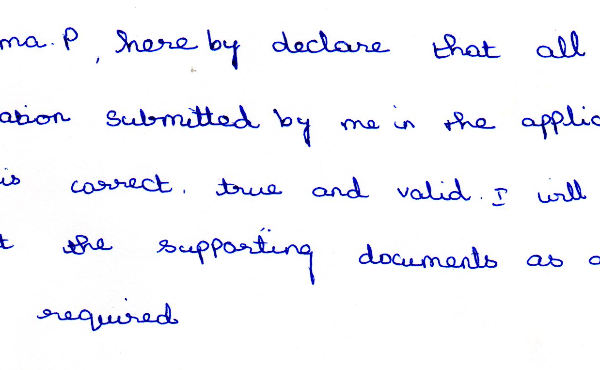 ma. P, here by declare that all
ation submitted by me in the applic
is correct, true and valid. I will
t the supporting documents as a
required